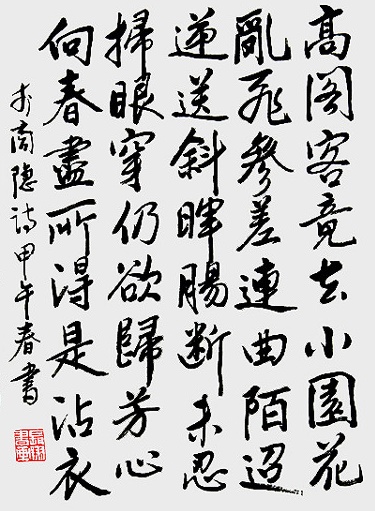 高閣客竟去小園花
亂飛參差連曲陌迢
遞送斜暉腸斷未忍
掃眼穿仍欲歸芳心
向春盡所得是沾衣
李商隱詩甲午春書